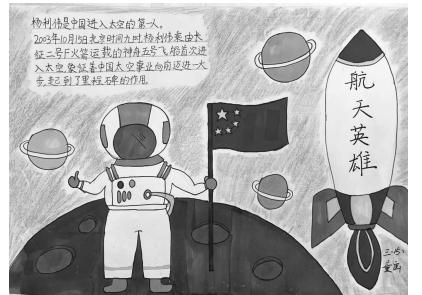 杨利伟是中国进入太空的第一人。
2003年10月15日北京时间九时,杨利伟乘由长
征二号F火箭运载的神舟五号飞船首次进
入太空,象征着中国太空事业向前迈进一大
步,起到了里程碑的作用。
航天英雄
三.(5)